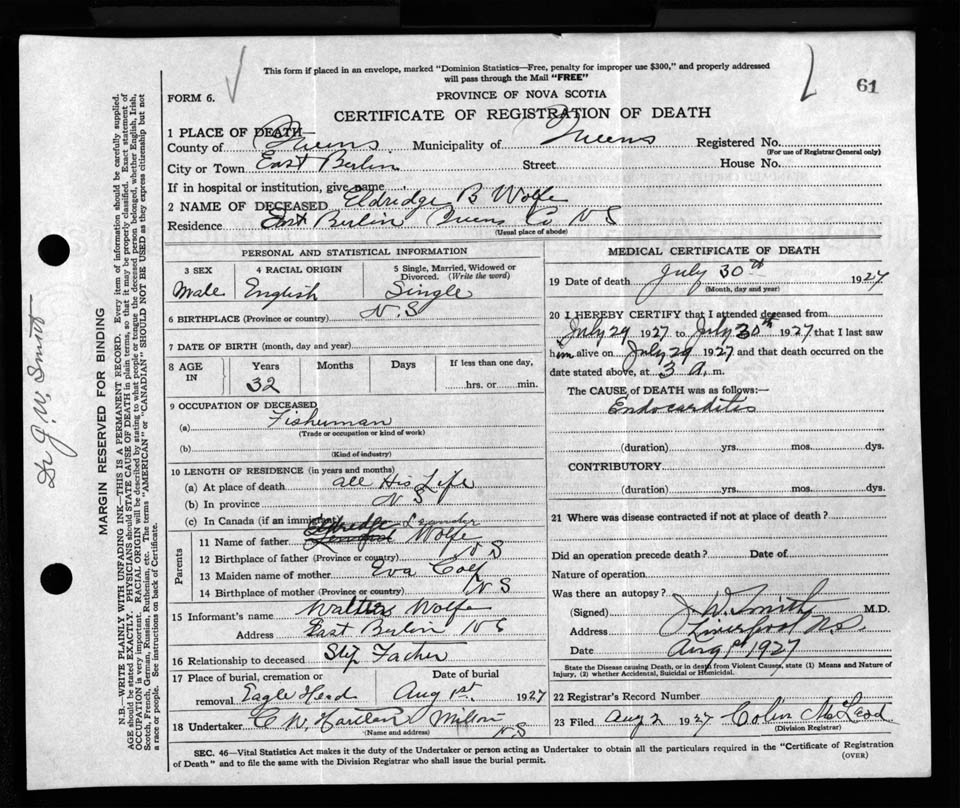 This form if placed in an envelope, marked "Dominion Statistics—Free, penalty for improper use $300," and properly addressed
will pass through the Mail "FREE"
61
FORM 6.
PROVINCE OF NOVA SCOTIA
CERTIFICATE OF REGISTRATION OF DEATH
1 PLACE OF DEATH—
County of Queens Municipality of Queens Registered No.
(For use of Registrar General only)
City or Town East Berlin Street House No.
If in hospital or institution, give name
2 NAME OF DECEASED Eldridge B Wolfe
Residence East Berlin Queens Co N S
(Usual place of abode)
PERSONAL AND STATISTICAL INFORMATION
3 SEX 4 RACIAL ORIGIN 5 Single, Married, Widowed or
Divorced. (Write the word)
Male English Single
6 BIRTHPLACE (Province or country) N. S
7 DATE OF BIRTH (month, day and year)
8 AGE IN Years Months Days If less than one day,
32 hrs. or min.
9 OCCUPATION OF DECEASED
(a) Fisherman
(Trade or occupation or kind of work)
(b)
(Kind of industry)
10 LENGTH OF RESIDENCE (in years and months)
(a) At place of death all His Life
(b) In province N S
(c) In Canada (if an immigrant)
Parents
11 Name of father Leander Wolfe
12 Birthplace of father (Province or country) N S
13 Maiden name of mother Eva Colp
14 Birthplace of mother (Province or country) N S
15 Informant's name Walter Wolfe
Address East Berlin N S
16 Relationship to deceased Step Father
17 Place of burial, cremation or Date of burial
removal Eagle Head Aug 1st 1927
18 Undertaker C W Milton N S
(Name and address)
MEDICAL CERTIFICATE OF DEATH
19 Date of death July 30th 1927
(Month, day and year)
20 I HEREBY CERTIFY that I attended deceased from
July 29 1927 to July 30th 1927 that I last saw
him alive on July 29 1927 and that death occurred on the
date stated above, at 3 A. m.
The CAUSE of DEATH was as follows:—
Endocarditis
(duration) yrs. mos. dys.
CONTRIBUTORY
(duration) yrs. mos. dys.
21 Where was disease contracted if not at place of death?
Did an operation precede death? Date of
Nature of operation
Was there an autopsy?
(Signed) J W Smith M.D.
Address Liverpool N.S.
Date Aug 1st 1927
State the Disease causing Death, or in death from Violent Causes, state (1) Means and Nature of
Injury, (2) whether Accidental, Suicidal or Homicidal.
22 Registrar's Record Number
23 Filed Aug 2 1927 Colin McLeod
(Division Registrar)
SEC. 46—Vital Statistics Act makes it the duty of the Undertaker or person acting as Undertaker to obtain all the particulars required in the "Certificate of Registration
of Death" and to file the same with the Division Registrar who shall issue the burial permit.
(OVER)
Dr J. W. Smith
MARGIN RESERVED FOR BINDING
N.B.—WRITE PLAINLY WITH UNFADING INK—THIS IS A PERMANENT RECORD. Every item of information should be carefully supplied.
AGE should be stated EXACTLY. PHYSICIANS should STATE CAUSE OF DEATH in plain terms, so that it may be properly classified. Exact statement of
OCCUPATION is very important. RACIAL ORIGIN will be described by stating to what people or tongue the deceased person belonged, whether English, Irish,
Scotch, French, German, Russian, Ruthenian, etc. The terms "AMERICAN" or "CANADIAN" SHOULD NOT BE USED as they express citizenship but not
a race or people. See instructions on back of Certificate.